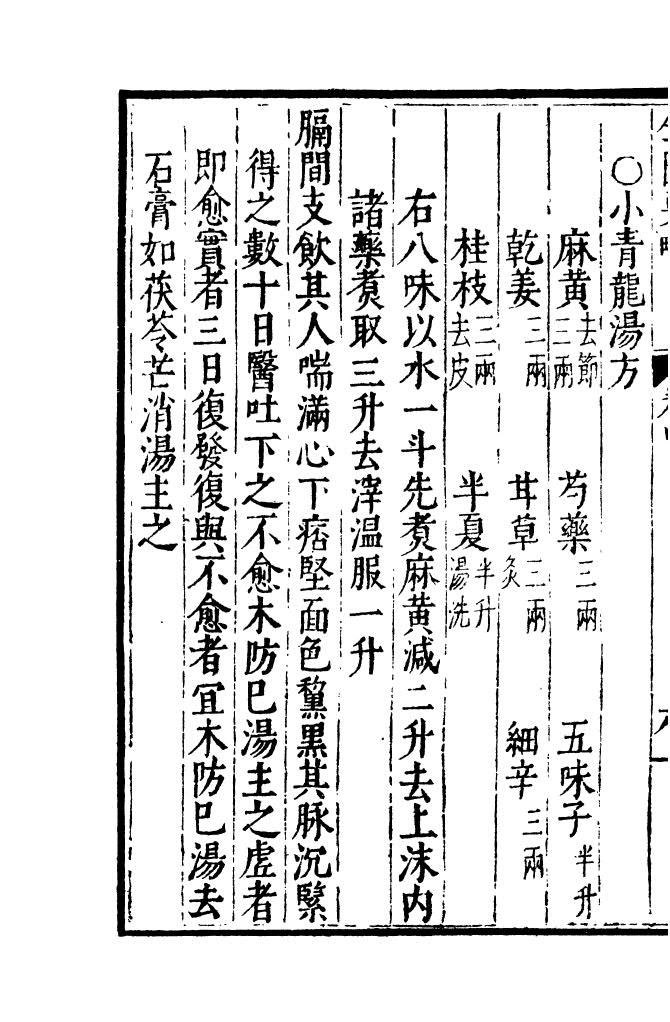 ○小青龍湯方
麻黃去節三兩 芍藥三兩 五味子半升
乾姜三兩 甘草三兩炙 細辛三兩
桂枝三兩去皮 半夏半升湯洗
右八味以水一斗先煑麻黃減二升去上沫内
諸藥煑取三升去滓温服一升
膈間支飲其人喘滿心下痞堅面色黧黑其脉沉緊
得之數十日醫吐下之不愈木防巳湯主之虛者
即愈實者三日復發復與不愈者冝木防巳湯去
石膏加茯苓芒消湯主之